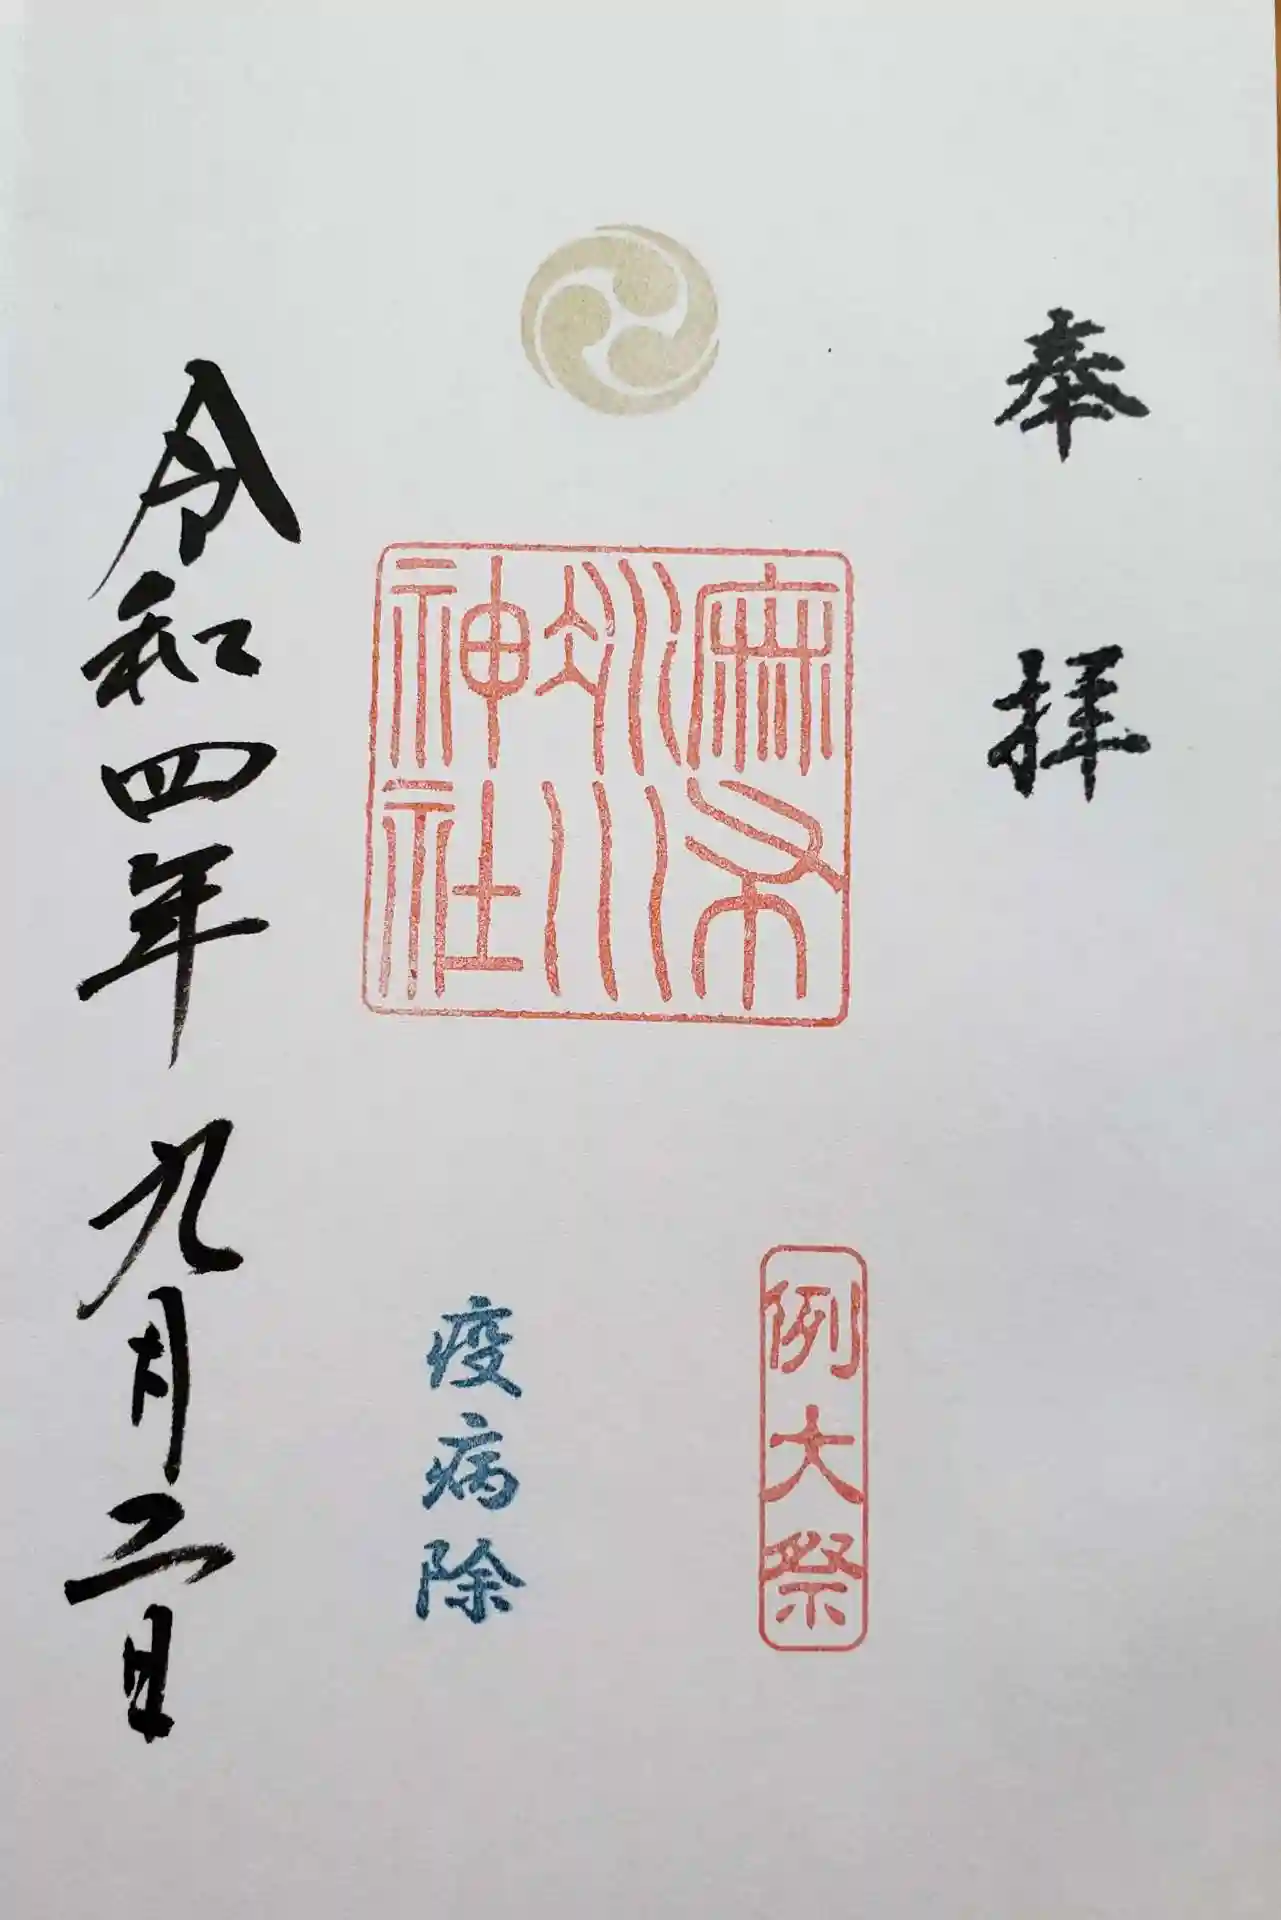 奉拝
例大祭
麻布
氷川
神社
疫病除
令和四年九月二日